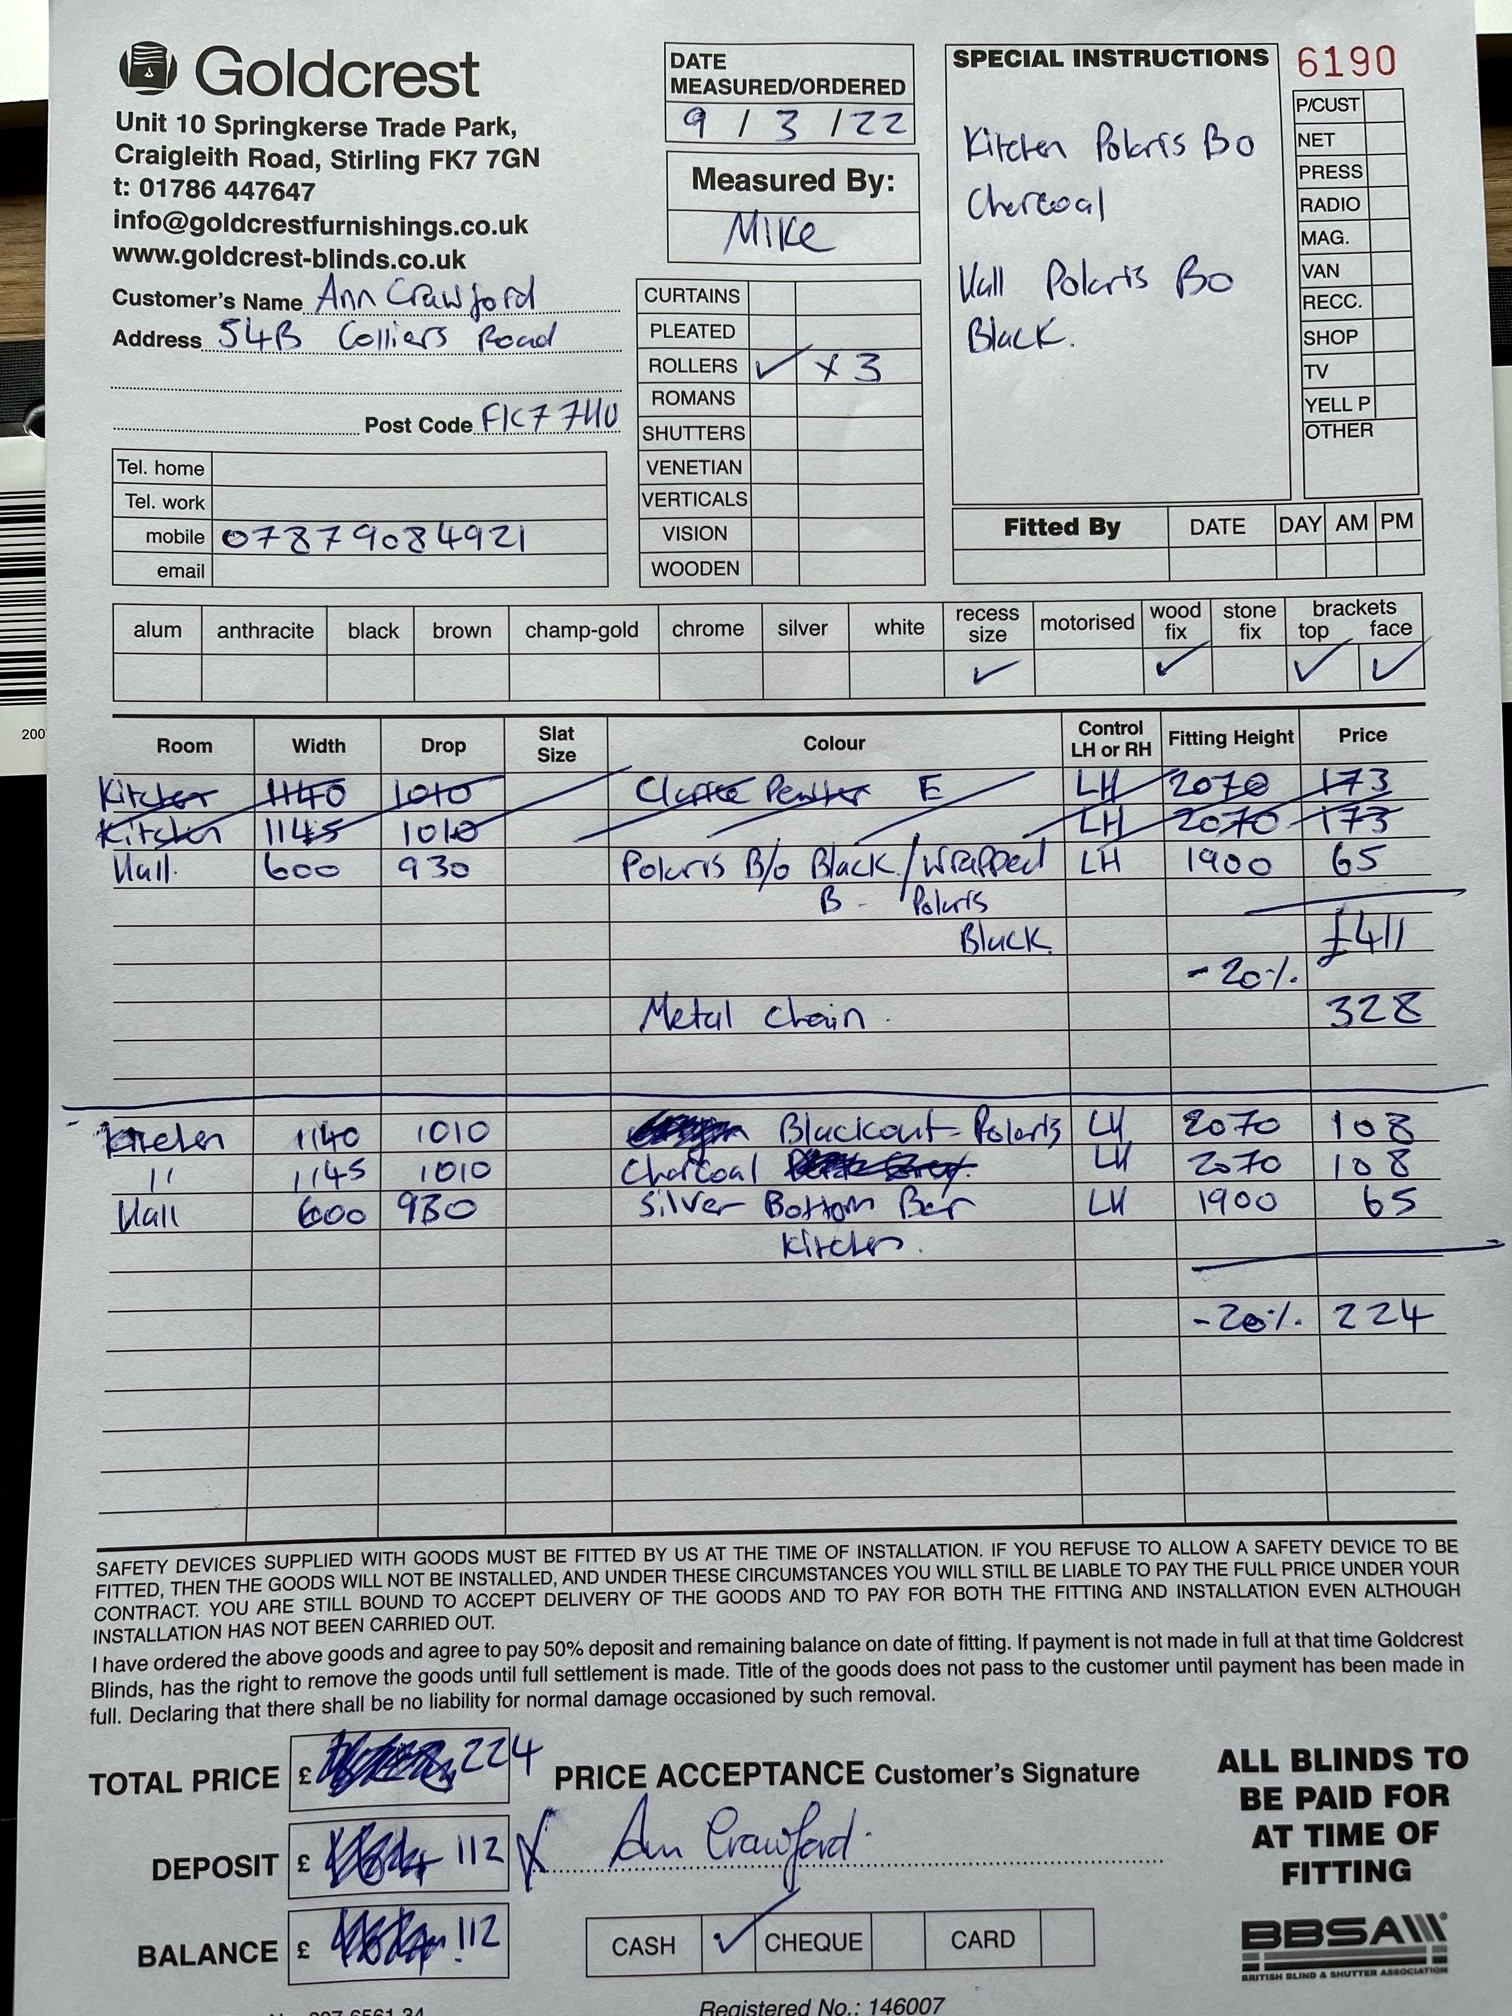 Goldcrest
Unit 10 Springkerse Trade Park,
Craigleith Road, Stirling FK7 7GN
t: 01786 447647
info@goldcrestfurnishings.co.uk
www.goldcrest-blinds.co.uk
Customer's Name Ann Crawford
Address 54B Colliers Road
Post Code FK7 7HU
Tel. home
Tel. work
mobile 07879084921
email
DATE
MEASURED/ORDERED
9 / 3 / 22
Measured By:
Mike
CURTAINS
PLEATED
ROLLERS ✓ x 3
ROMANS
SHUTTERS
VENETIAN
VERTICALS
VISION
WOODEN
SPECIAL INSTRUCTIONS
Kitchen Polaris Bo
Charcoal
Hall Polaris Bo
Black.
6190
P/CUST
NET
PRESS
RADIO
MAG.
VAN
RECC.
SHOP
TV
YELL P
OTHER
Fitted By DATE DAY AM PM
alum anthracite black brown champ-gold chrome silver white recess size motorised wood fix stone fix brackets top face
✓ ✓ ✓ ✓
Room Width Drop Slat Size Colour Control LH or RH Fitting Height Price
Kitchen 1140 1010 Pewter E LH 2070 173
Kitchen 1145 1010 LH 2070 173
Hall. 600 930 Polaris B/o Black / Wrapped LH 1900 65
B - Polaris
Black. £411
-20%.
Metal Chain. 328
Kitchen 1140 1010 Blackout - Polaris LH 2070 108
11 1145 1010 Charcoal LH 2070 108
Hall 600 930 Silver Bottom Bar LH 1900 65
Kitchen.
-20%. 224
SAFETY DEVICES SUPPLIED WITH GOODS MUST BE FITTED BY US AT THE TIME OF INSTALLATION. IF YOU REFUSE TO ALLOW A SAFETY DEVICE TO BE
FITTED, THEN THE GOODS WILL NOT BE INSTALLED, AND UNDER THESE CIRCUMSTANCES YOU WILL STILL BE LIABLE TO PAY THE FULL PRICE UNDER YOUR
CONTRACT. YOU ARE STILL BOUND TO ACCEPT DELIVERY OF THE GOODS AND TO PAY FOR BOTH THE FITTING AND INSTALLATION EVEN ALTHOUGH
INSTALLATION HAS NOT BEEN CARRIED OUT.
I have ordered the above goods and agree to pay 50% deposit and remaining balance on date of fitting. If payment is not made in full at that time Goldcrest
Blinds, has the right to remove the goods until full settlement is made. Title of the goods does not pass to the customer until payment has been made in
full. Declaring that there shall be no liability for normal damage occasioned by such removal.
TOTAL PRICE £ 224
DEPOSIT £ 112
BALANCE £ 112
PRICE ACCEPTANCE Customer's Signature
X Ann Crawford.
CASH ✓ CHEQUE CARD
ALL BLINDS TO
BE PAID FOR
AT TIME OF
FITTING
BBSA
BRITISH BLIND & SHUTTER ASSOCIATION
Registered No.: 146007
200